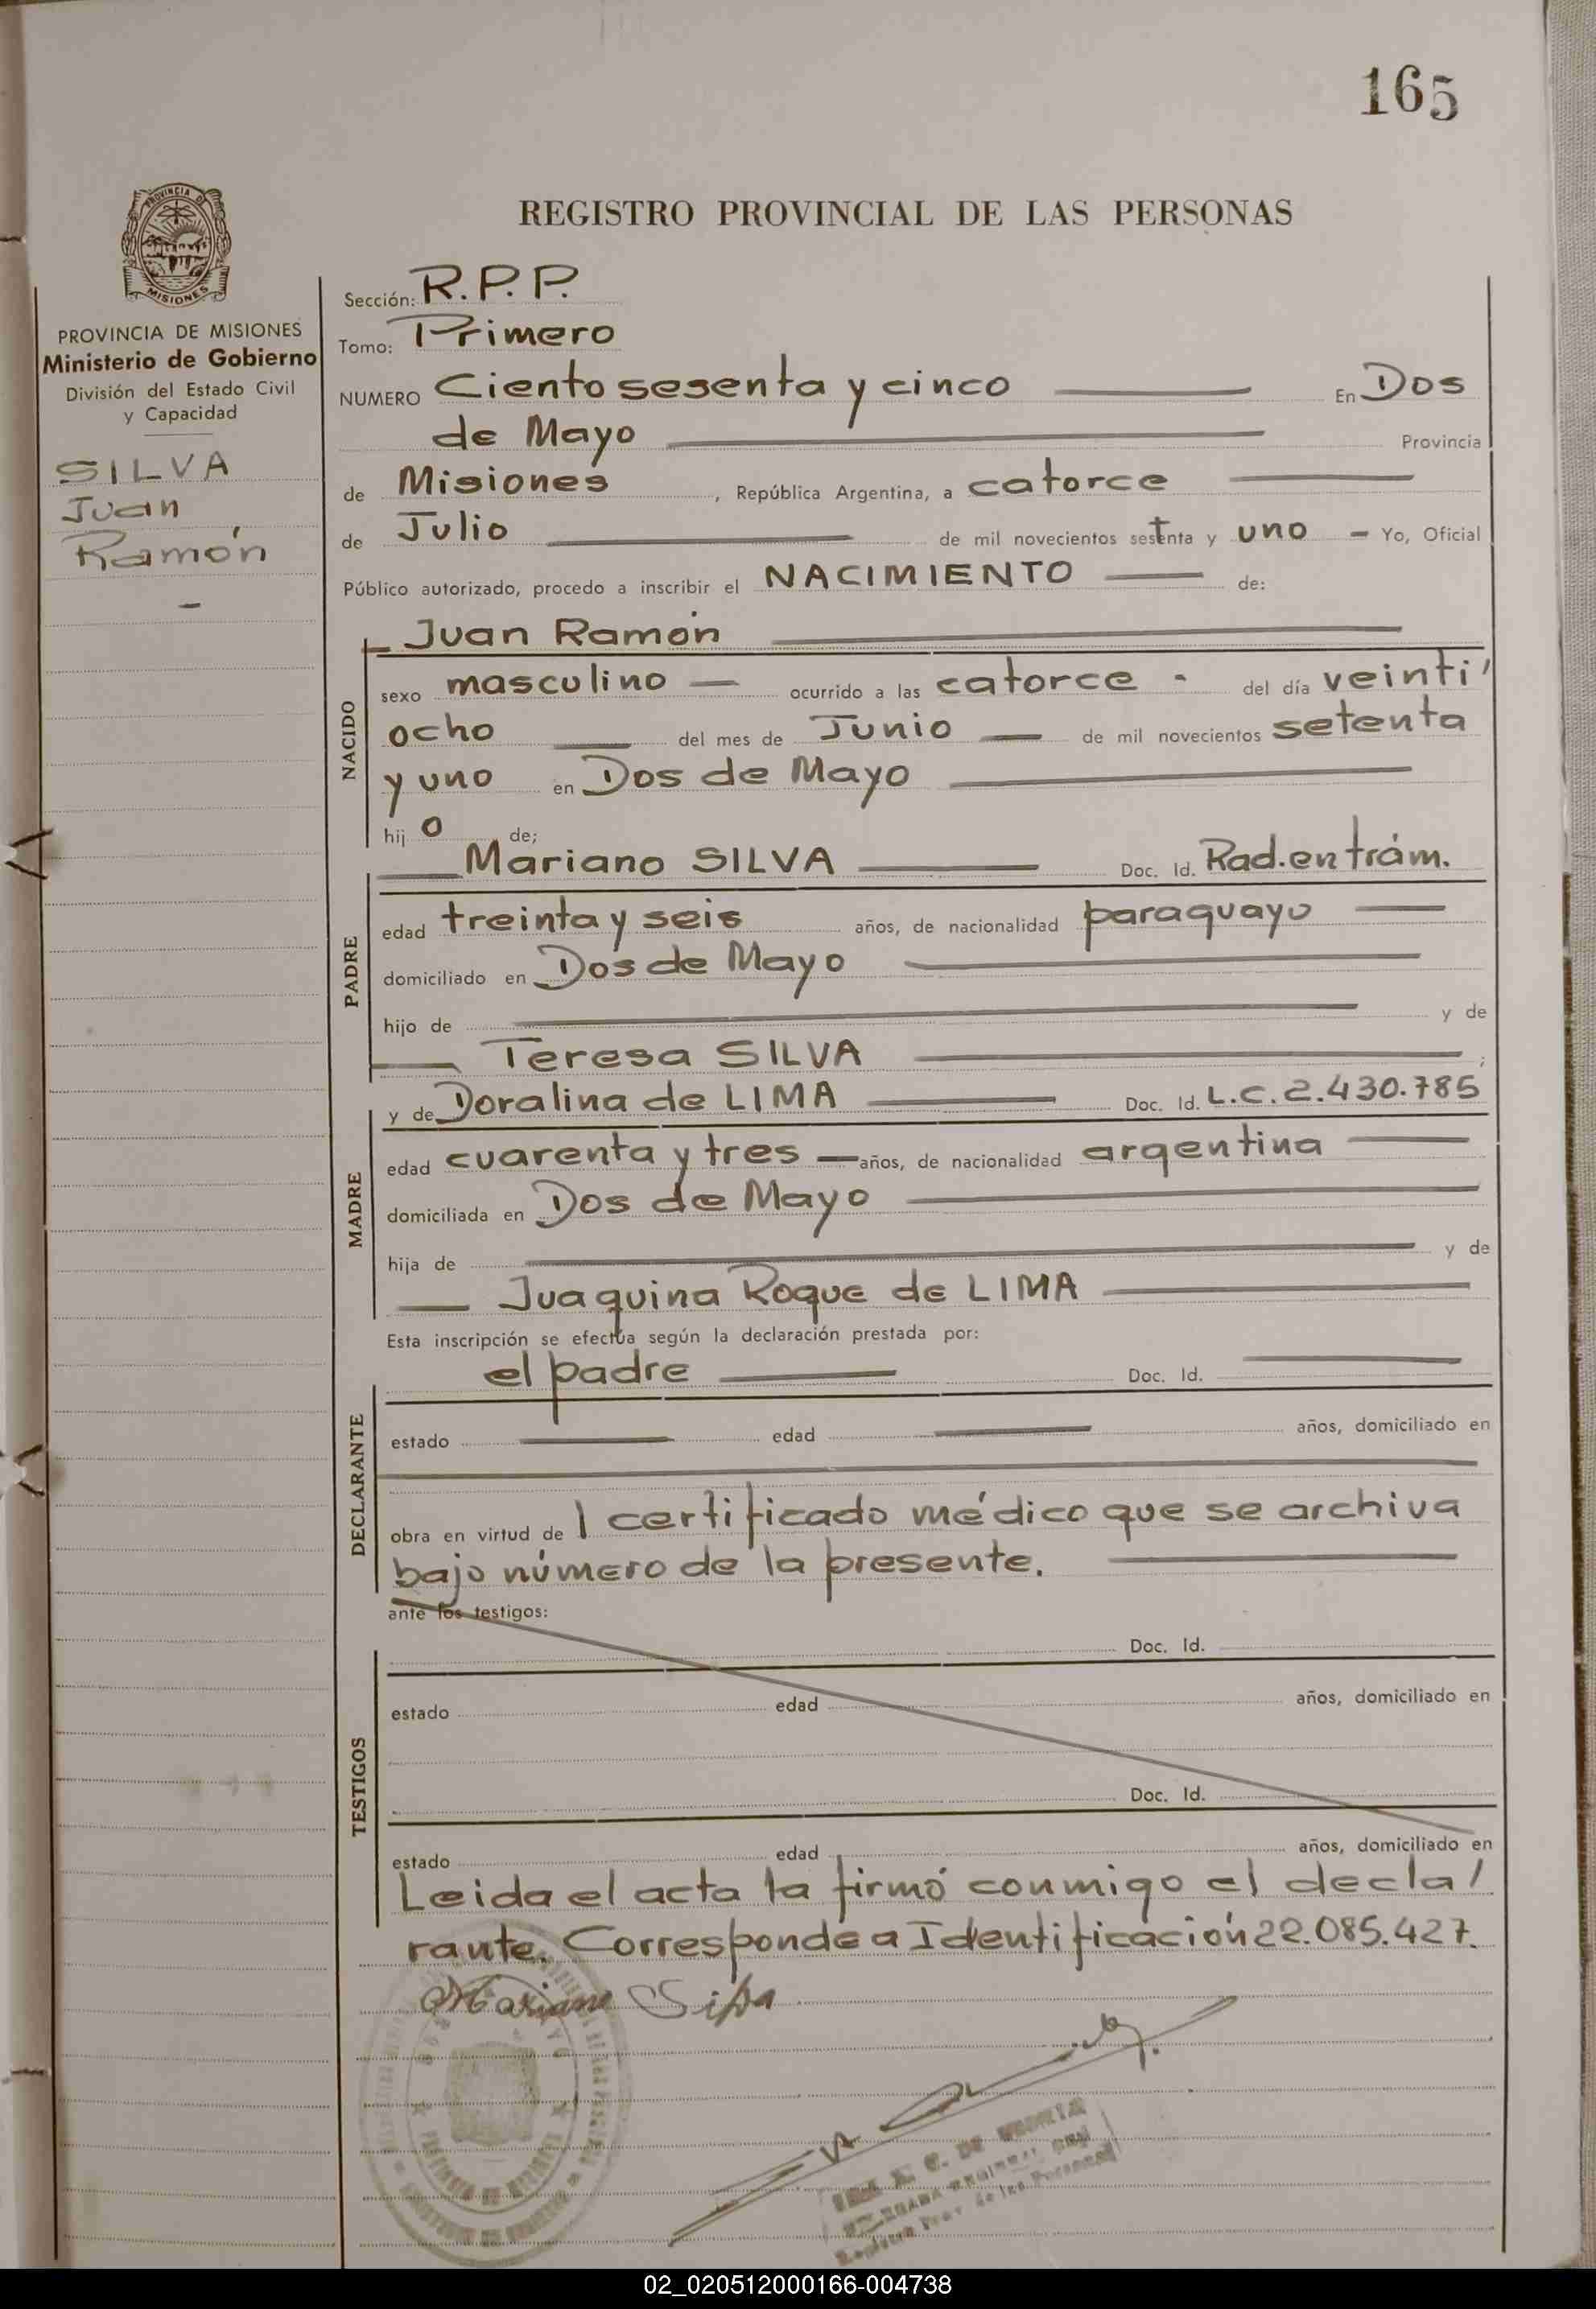 165
PROVINCIA DE
MISIONES
REGISTRO PROVINCIAL DE LAS PERSONAS
PROVINCIA DE MISIONES
Ministerio de Gobierno
División del Estado Civil
y Capacidad
SILVA
Juan
Ramón
Sección: R.P.P.
Tomo: Primero
NUMERO Ciento sesenta y cinco En Dos
de Mayo Provincia
de Misiones, República Argentina, a catorce
de Julio de mil novecientos setenta y uno - Yo, Oficial
Público autorizado, procedo a inscribir el NACIMIENTO de:
Juan Ramón
NACIDO
sexo masculino ocurrido a las catorce - del día veinti
ocho del mes de Junio de mil novecientos setenta
y uno en Dos de Mayo
hij o de;
Mariano SILVA Doc. Id. Rad. en trám.
PADRE
edad treinta y seis años, de nacionalidad paraguayo
domiciliado en Dos de Mayo
hijo de y de
Teresa SILVA ;
y de Doralina de LIMA Doc. Id. L.C. 2.430.785
MADRE
edad cuarenta y tres años, de nacionalidad argentina
domiciliada en Dos de Mayo
hija de y de
Juaquina Roque de LIMA
Esta inscripción se efectúa según la declaración prestada por:
el padre Doc. Id.
DECLARANTE
estado edad años, domiciliado en
obra en virtud de 1 certificado médico que se archiva
bajo número de la presente.
ante los testigos:
Doc. Id.
TESTIGOS
estado edad años, domiciliado en
Doc. Id.
estado edad años, domiciliado en
Leida el acta la firmó conmigo el decla/
rante. Corresponde a Identificación 22.085.427.
Mariano Silva
02_020512000166-004738